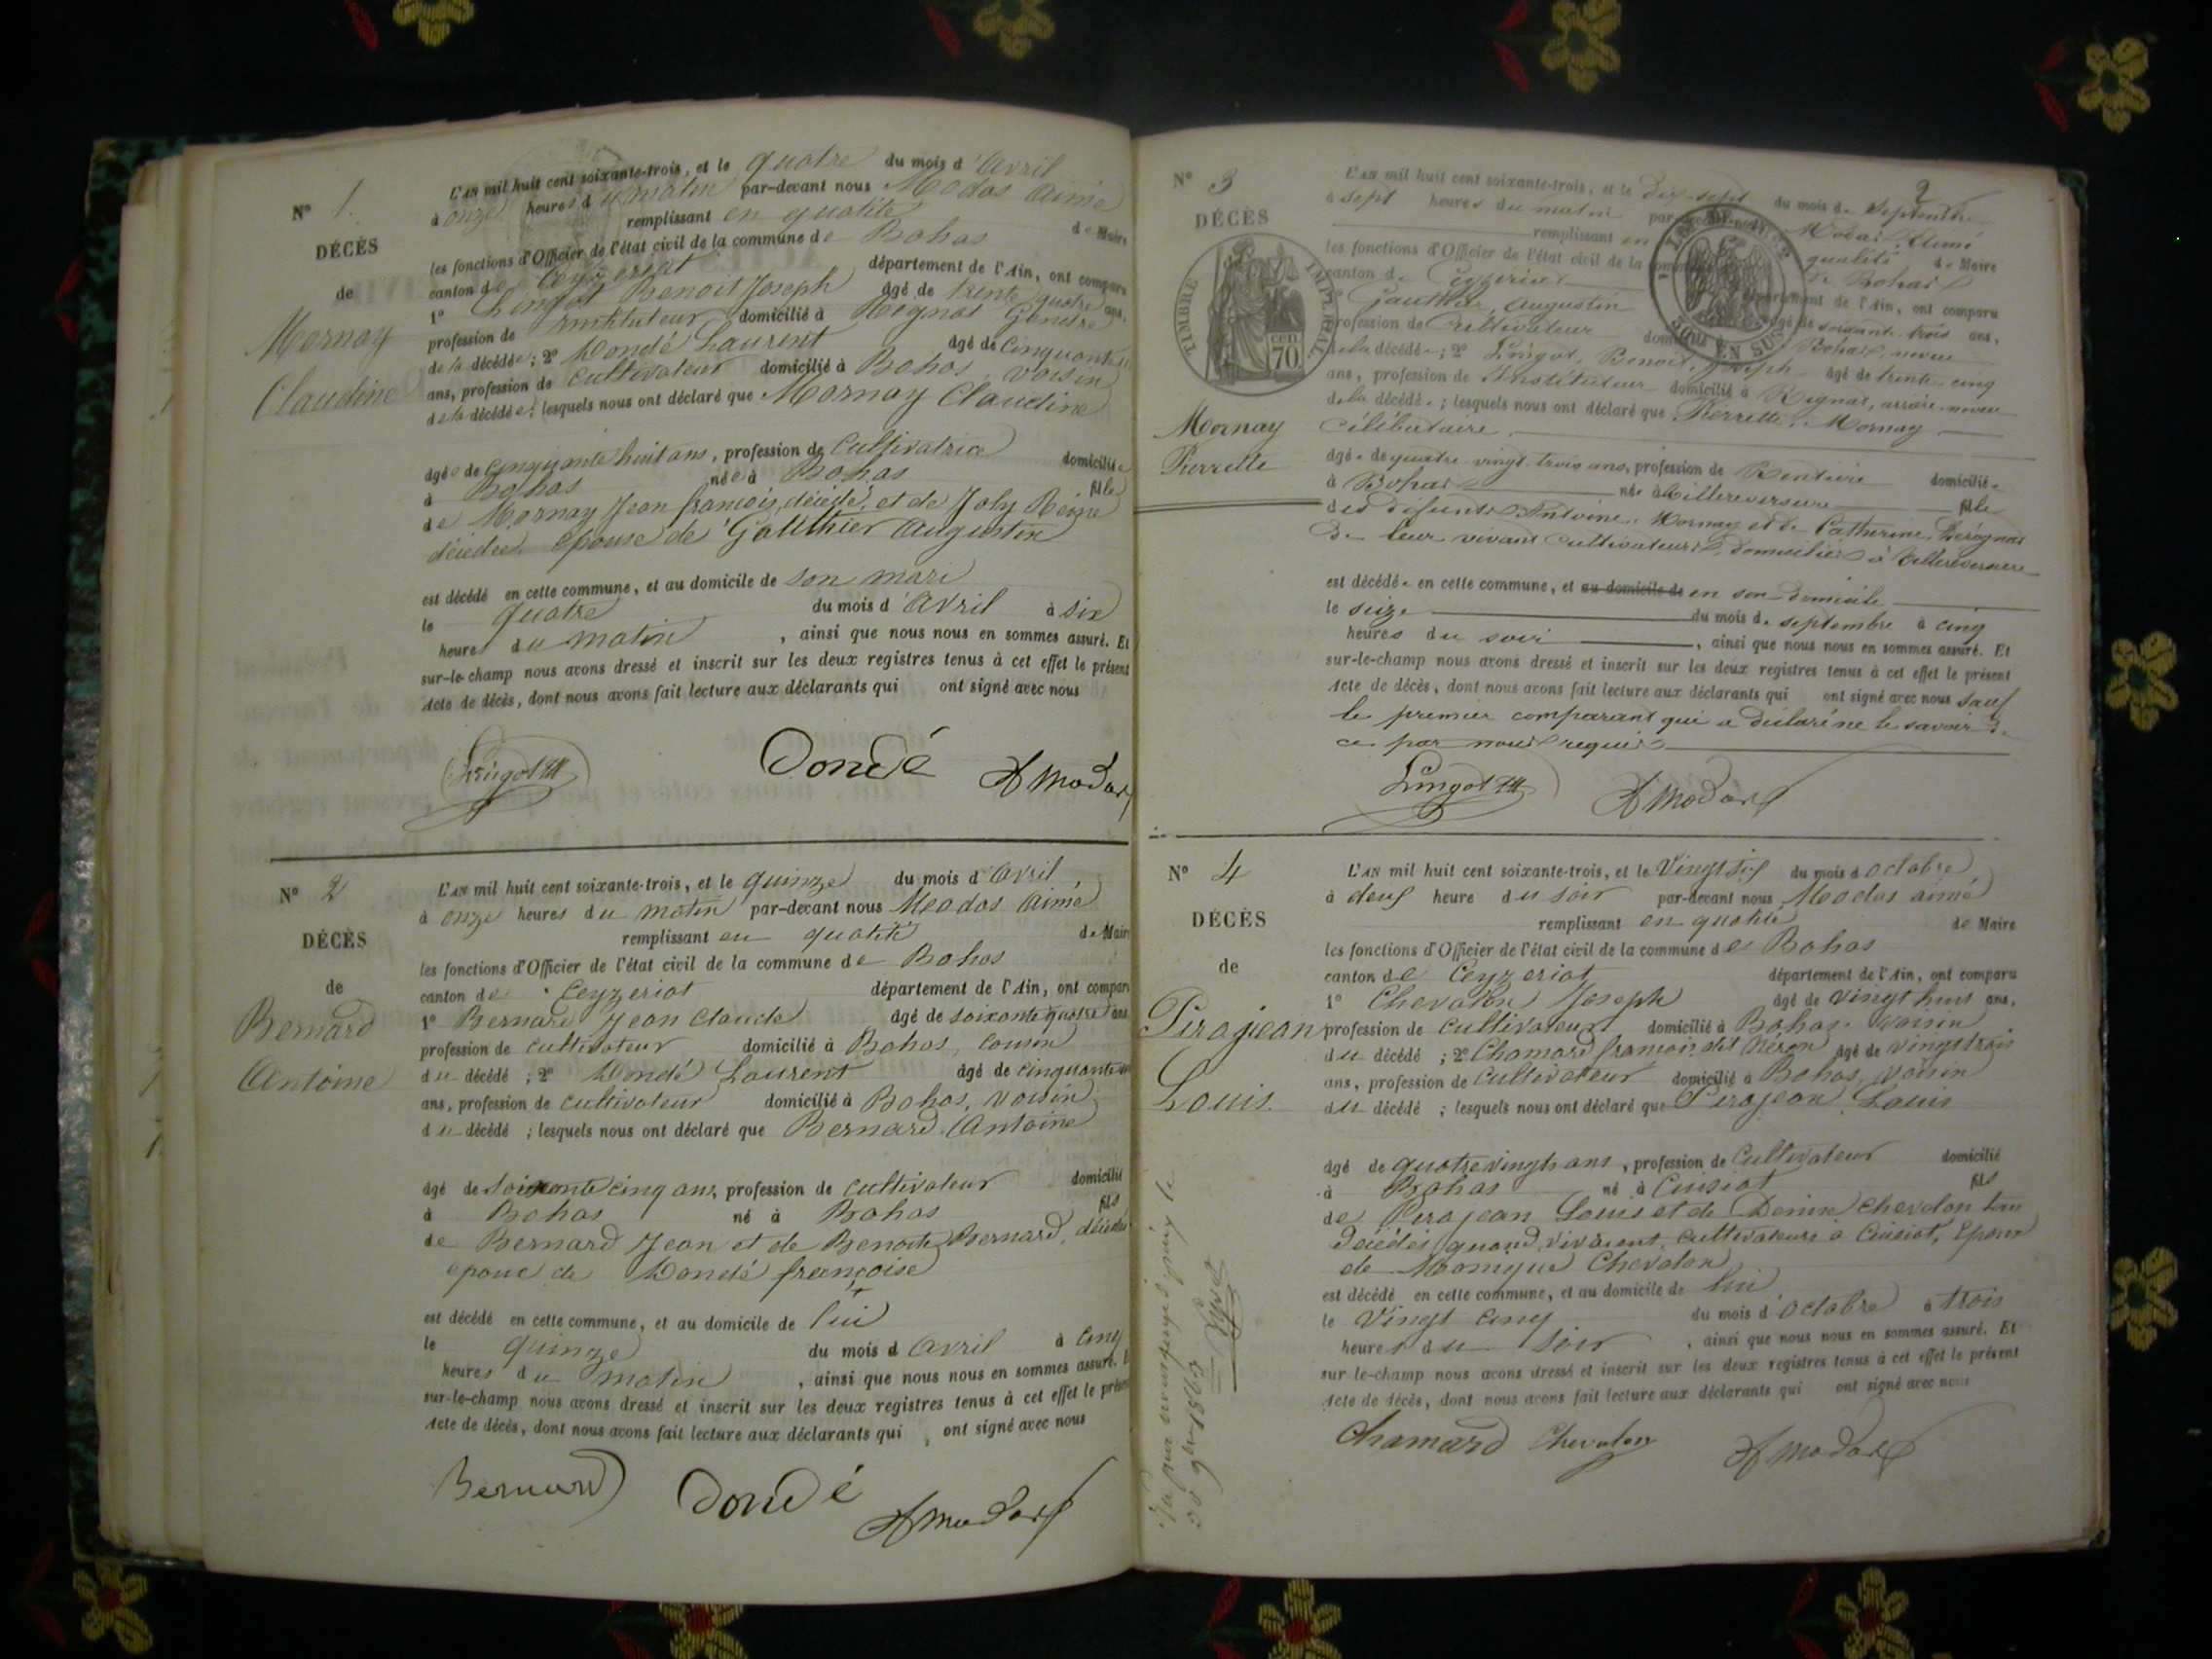 N° 1.
DÉCÈS
de
Mornay
Claudine
L'AN mil huit cent soixante-trois, et le quatre du mois d'Avril
à onze heures du matin par-devant nous Modas Aimé
remplissant en qualité de Maire
les fonctions d'Officier de l'état civil de la commune de Bohas
canton de Ceyzeriat département de l'Ain, ont comparu
1° Lingot Benoit Joseph âgé de trente quatre ans,
profession de instituteur domicilié à Meignat Gendre
de la décédée ; 2° Dondé Laurent âgé de Cinquante
ans, profession de cultivateur domicilié à Bohas, voisin
de la décédée ; lesquels nous ont déclaré que Mornay Claudine
âgée de cinquante huit ans, profession de Cultivatrice domiciliée
à Bohas née à Bohas fille
de Mornay Jean françois, décédé, et de Joly Reine
décédée. épouse de Gauthier Augustin
est décédé en cette commune, et au domicile de son mari
le quatre du mois d'Avril à six
heures du matin, ainsi que nous nous en sommes assuré. Et
sur-le-champ nous avons dressé et inscrit sur les deux registres tenus à cet effet le présent
Acte de décès, dont nous avons fait lecture aux déclarants qui ont signé avec nous
Lingot Dondé A Modas
N° 2
DÉCÈS
de
Bernard
Antoine
L'AN mil huit cent soixante-trois, et le quinze du mois d'Avril
à onze heures du matin par-devant nous Modas Aimé
remplissant en qualité de Maire
les fonctions d'Officier de l'état civil de la commune de Bohas
canton de Ceyzeriat département de l'Ain, ont comparu
1° Bernard Jean Claude âgé de soixante quatre ans
profession de cultivateur domicilié à Bohas, cousin
du décédé ; 2° Dondé Laurent âgé de cinquante
ans, profession de cultivateur domicilié à Bohas, voisin
du décédé ; lesquels nous ont déclaré que Bernard Antoine
âgé de soixante cinq ans, profession de cultivateur domicilié
à Bohas né à Bohas fils
de Bernard Jean et de Benoite Bernard, décédés
epoux de Dondé françoise
est décédé en cette commune, et au domicile de lui
le quinze du mois d Avril à Cinq
heures du matin, ainsi que nous nous en sommes assuré. Et
sur-le-champ nous avons dressé et inscrit sur les deux registres tenus à cet effet le présent
Acte de décès, dont nous avons fait lecture aux déclarants qui ont signé avec nous
Bernard Dondé A Modas
2
N° 3
DÉCÈS
TIMBRE IMPÉRIAL
70 cen
Mornay
Pierrette
L'AN mil huit cent soixante-trois, et le Dix-sept du mois de Septembre
à sept heures du matin par-devant nous Modas, Aimé
remplissant en qualité de Maire
les fonctions d'Officier de l'état civil de la commune de Bohas
canton de Ceyzeriat département de l'Ain, ont comparu
Gauthier, Augustin âgé de soixante trois ans,
profession de Cultivateur domicilié à Bohas, neveu
de la décédée ; 2° Lingot, Benoit, Joseph âgé de trente cinq
ans, profession de Instituteur domicilié à Rignat, arrière-neveu
de la décédée ; lesquels nous ont déclaré que Pierrette, Mornay
Célibataire
âgée de quatre vingt trois ans, profession de Rentière domiciliée
à Bohas née à Villereversure fille
des défunts Antoine, Mornay et de Catherine
De leur vivant Cultivateurs, domiciliés à Villereversure
est décédée en cette commune, et au domicile de en son domicile
le seize du mois de septembre à cinq
heures du soir, ainsi que nous nous en sommes assuré. Et
sur-le-champ nous avons dressé et inscrit sur les deux registres tenus à cet effet le présent
Acte de décès, dont nous avons fait lecture aux déclarants qui ont signé avec nous sauf
le premier comparant qui a déclaré ne le savoir de
ce par nous requis
Lingot A Modas
N° 4
DÉCÈS
de
Pirajean
Louis
L'AN mil huit cent soixante-trois, et le Vingt six du mois d Octobre
à deux heure du soir par-devant nous Modas aimé
remplissant en qualité de Maire
les fonctions d'Officier de l'état civil de la commune de Bohas
canton de Ceyzeriat département de l'Ain, ont comparu
1° Chevalon Joseph âgé de vingt huit ans,
profession de cultivateur domicilié à Bohas voisin
du décédé ; 2° Chamard françois dit Néron âgé de vingt trois
ans, profession de cultivateur domicilié à Bohas, voisin
du décédé ; lesquels nous ont déclaré que Pirajean Louis
âgé de quatre vingts ans, profession de Cultivateur domicilié
à Bohas né à Cuisiat fils
de Pirajean Louis et de Denise Chevalon tous
décédés quand vivaient cultivateurs à Cuisiat, Epoux
de Monique Chevalon
est décédé en cette commune, et au domicile de lui
le Vingt Cinq du mois d'octobre à trois
heures du soir, ainsi que nous nous en sommes assuré. Et
sur le-champ nous avons dressé et inscrit sur les deux registres tenus à cet effet le présent
Acte de décès, dont nous avons fait lecture aux déclarants qui ont signé avec nous
Chamard Chevalon A Modas